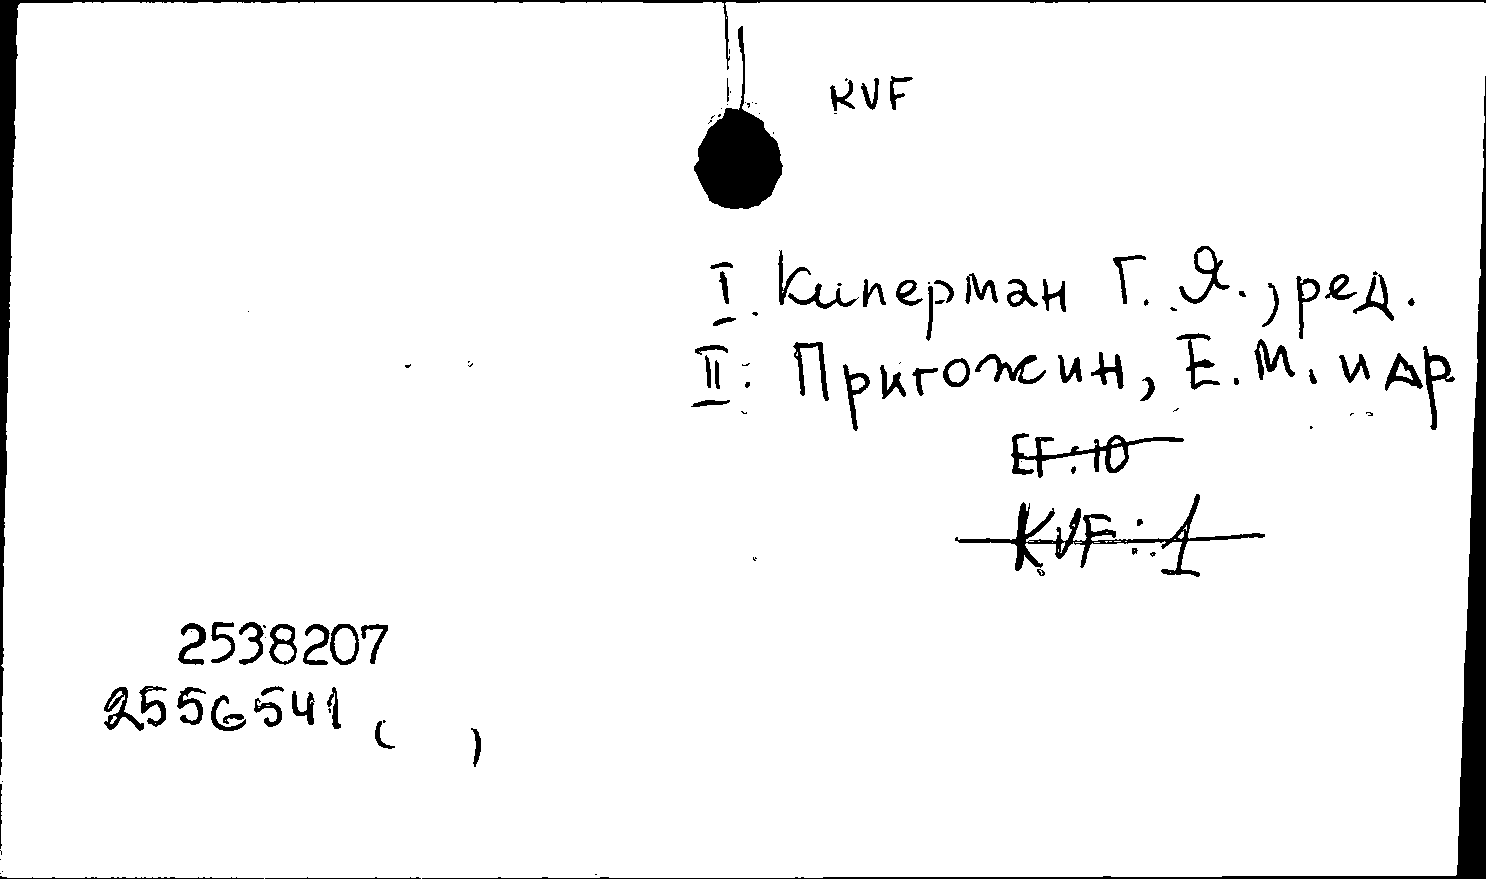 KVF
I. Киперман Г. Я., ред.
II. Пригожин, Е. М. и др
EF: 10
KVF: 1
2538207
2556541 ( )